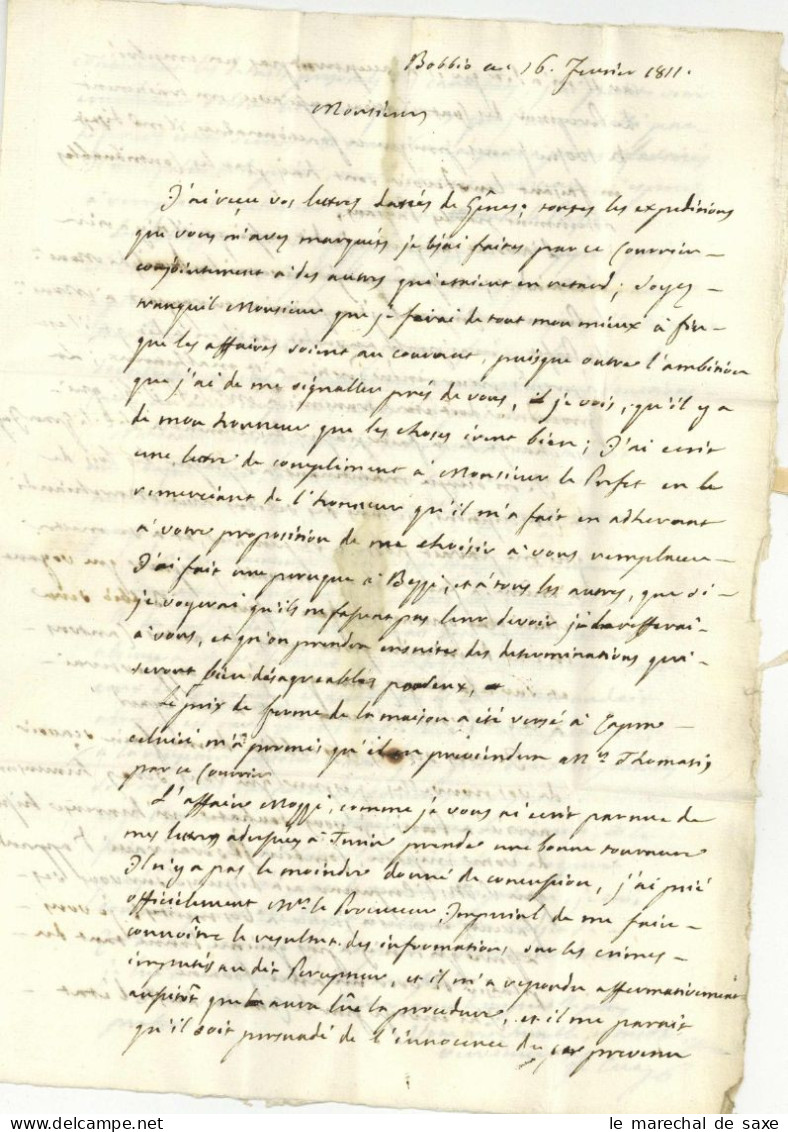 Bobbio ce 16. Fevrier 1811.
Monsieur
J'ai reçu vos lettres dattés de Gênes; toutes les expeditions
que vous m'aves marqués je les ai faites par ce Courrier
conjointement à des autres qui etaient en retard; soyez
tranquil Monsieur que je ferai de tout mon mieux à fin
que les affaires soient au courrant, puisque outre l'ambition
que j'ai de me signaller près de vous, je vois, qu'il y a
de mon honneur que les choses irent bien; J'ai ecrit
une lettre de compliment à Monsieur le Prefet en le
remerciant de l'honneur qu'il m'a fait en adherant
à votre proposition de me choisir à vous remplacer
J'ai fait une peruque à Bezzi, et à tous les autres, que si
je voyerai qu'ils ne fasent pas leur devoir je refferai
à vous, et qu'on prendra ensuites des determinations qui
seront bien désagreables pour eux,
Le prix de ferme de la maison a été versé à
celuici m'a promis qu'il en previendra Mr Thomasis
par ce Courrier
L'affaire Mozzi, comme je vous ai ecrit par une de
mes lettres adressées à Turin prendra une bonne tournure
Il n'y a pas le moindre donné de concussion, j'ai prié
officielement Mr le Procureur Imperial de me faire
connoître le resultat des informations sur les crimes
imputés au dit Percepteur, et il m'a repondu affermativement
aussitôt que aura lûe la procedure, et il me parait
qu'il soit persuadé de l'innocence du prevenu
le marechal de saxe